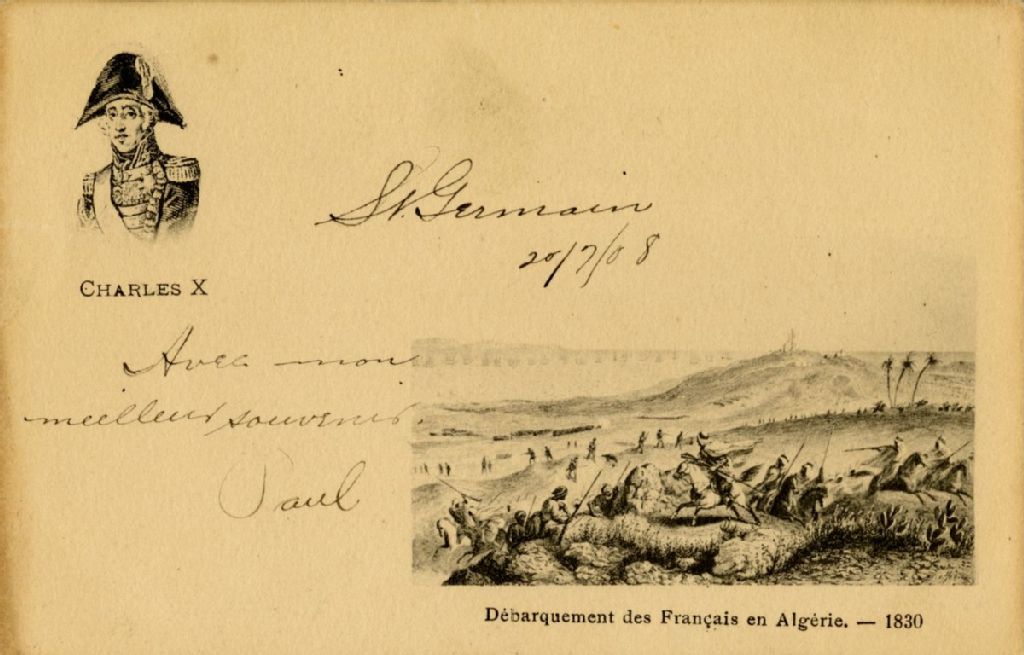 St. Germain
20/7/08
CHARLES X
Avec mon
meilleur souvenir.
Paul
Débarquement des Français en Algérie. — 1830